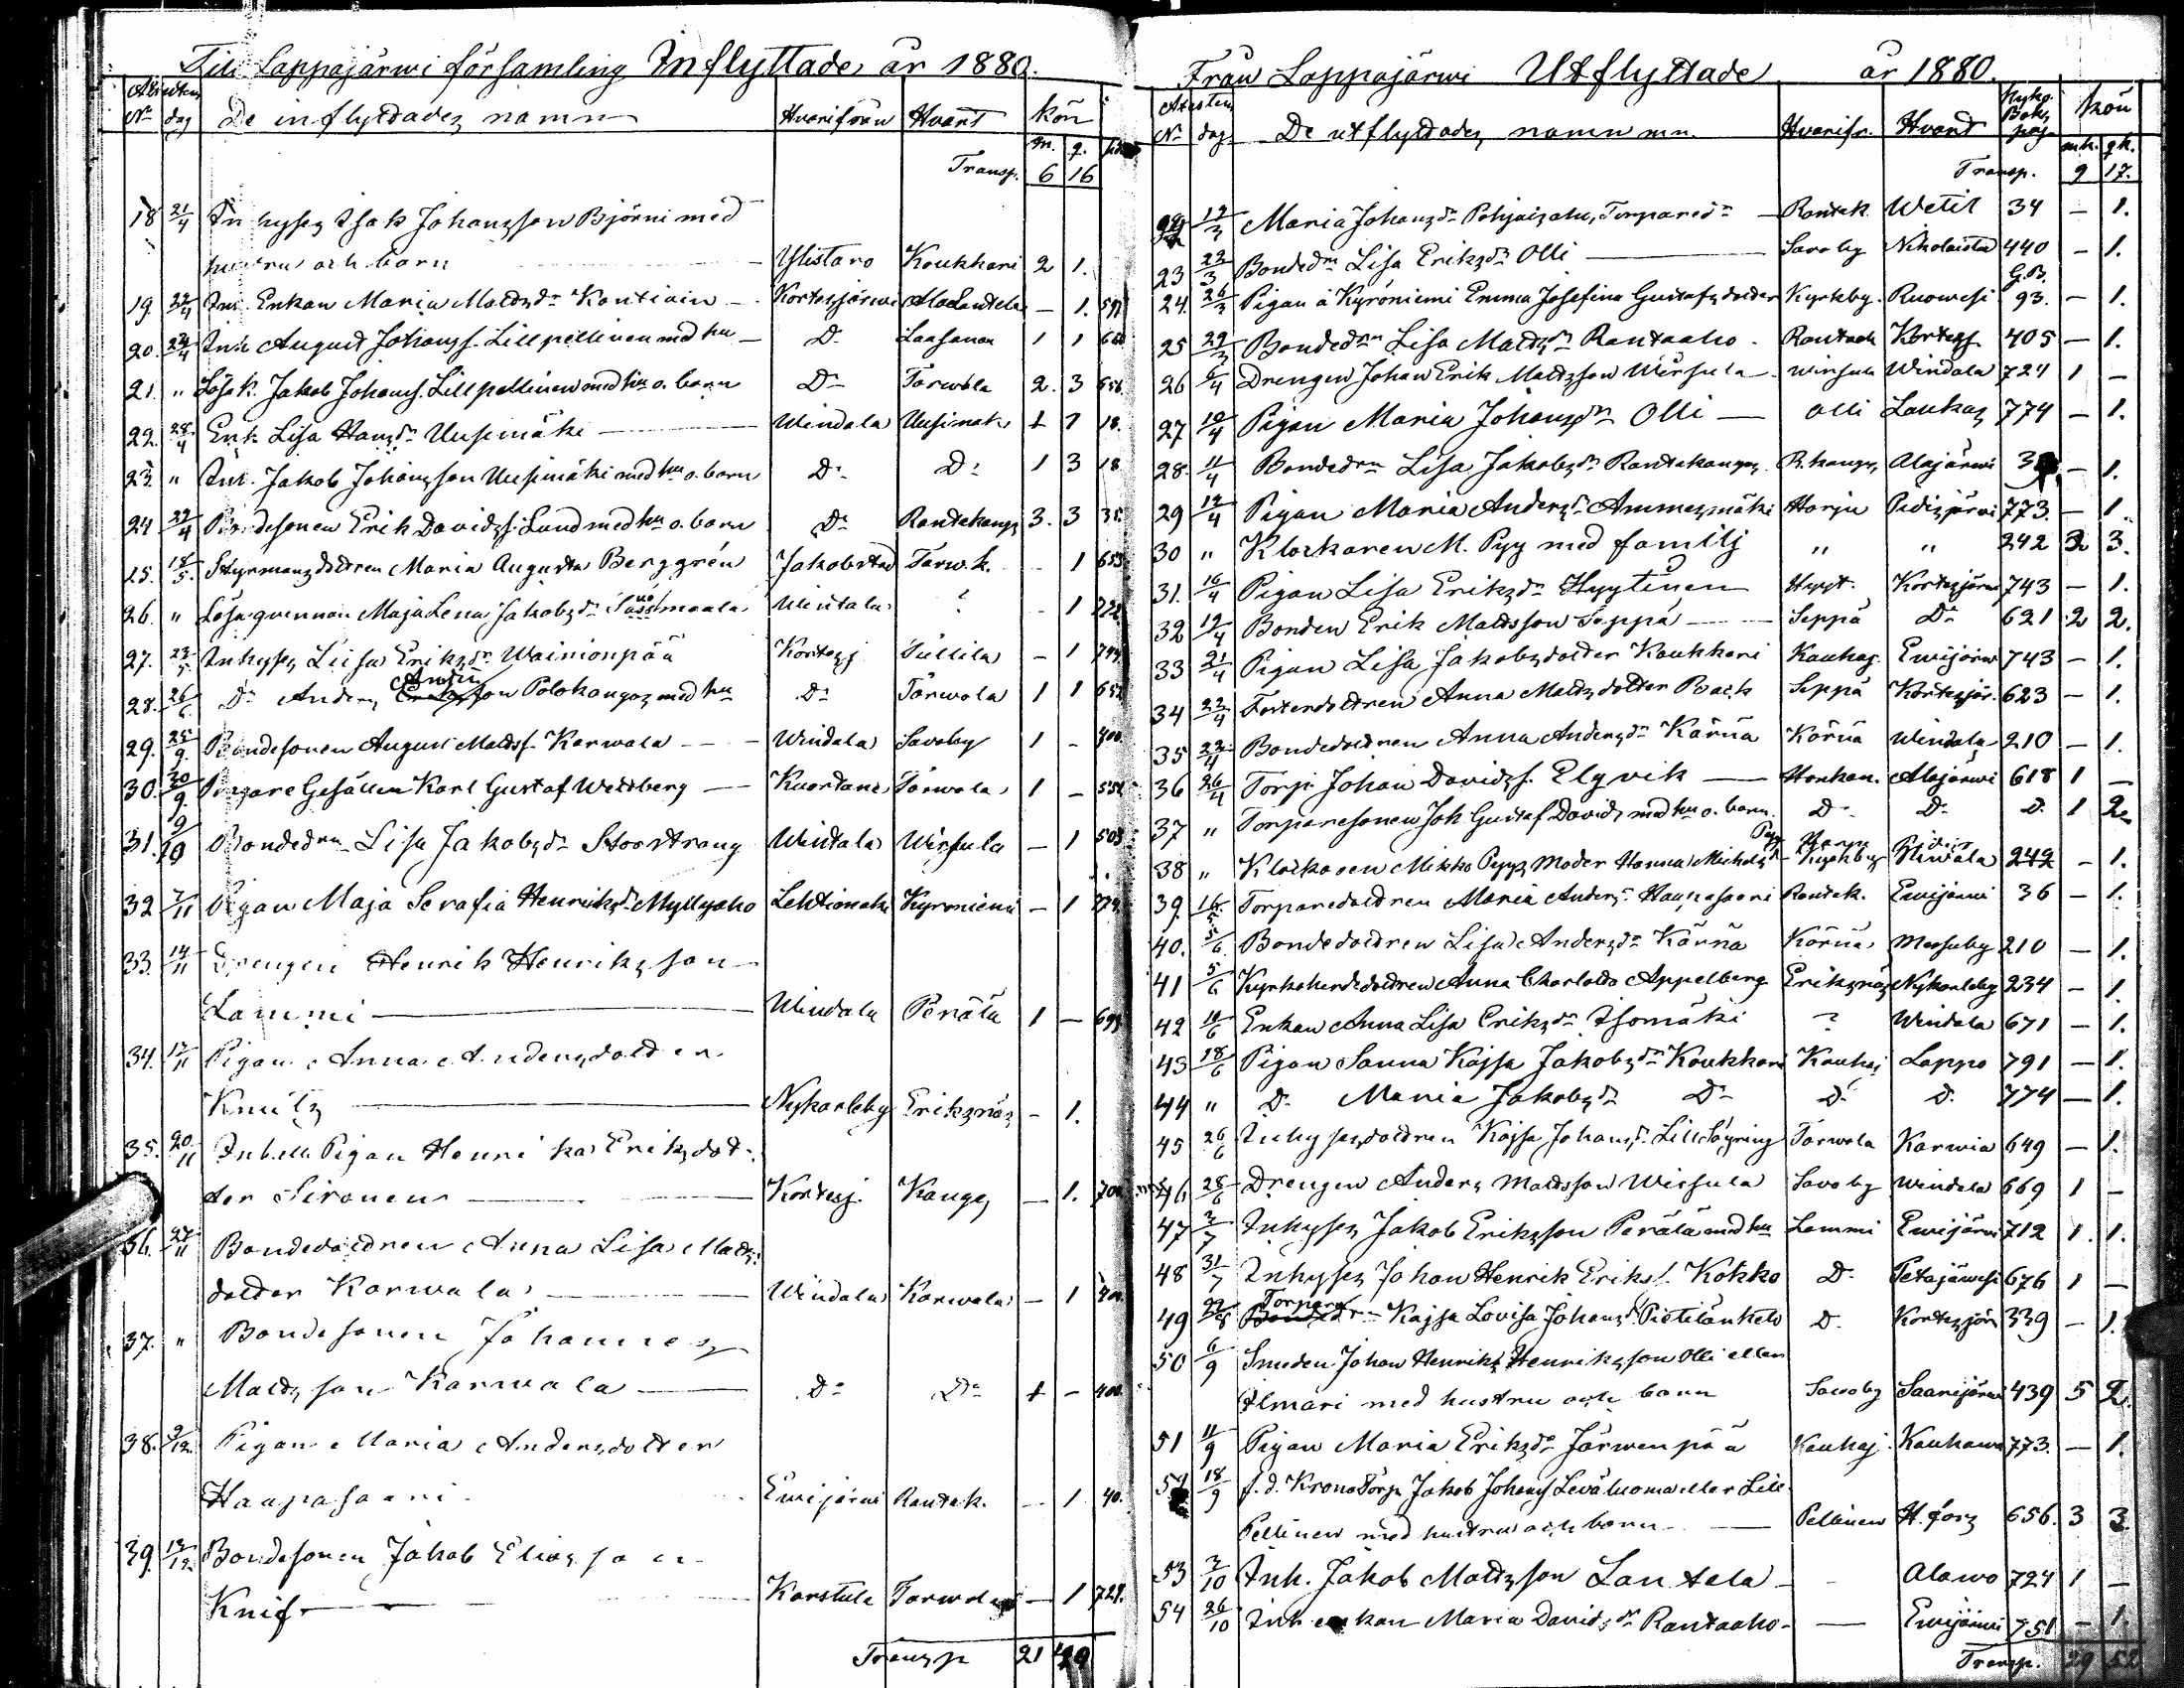 Till Lappajärwi församling Inflyttade år 1880.
Attestens
No dag De inflyttades namn Hvarifrån Hvart kön
m. q. sid
Transp. 6 16
18 21/4 Inhyses Isak Johansson Björni med
hustru och barn Ylistaro Koukkari 2 1.
19 22/4 Inh. Enkan Maria Mattsdr Kontiain Kortesjärwi Alalantela – 1. 597
20. 24/4 Inh August Johanss. Lillpellinen med hu Do Laasanen 1 1
21. " Lösk. Jakob Johanss. Lillpellinen med hu o. barn Do Tarwola 2. 3 656.
22. 28/4 Enk. Lisa Hansdr Uusimäki Windala Uusimäk 1 18.
23. " Inh. Jakob Johansson Uusimäki med hu o. barn Do Do 1 3 18
24 29/4 Bondesonen Erik Davidss. Lund med hu o. barn Do Rantakangs 3. 3 35.
25. 18/5. Styrmansdottren Maria Augusta Berggrén Jakobstad Tarw.k. – 1 655
26. " Lösa qvinnan Maja Lena Jakobsdr Windala ? – 1
27. 23/5 Inhyses Lisa Eriksdr Wainionpää Kortesj Tullila – 1
28. 26/6. Do Anders Polokangas med hu Do Tarwola 1 1
29. 25/9. Bondesonen August Mattss. Karwala Windala Savoby 1 – 400
30. 30/9 Garfvare Gesällen Karl Gustaf Weitberg Kuortane Tarwola 1 –
31. 9/10 Bondedrn Lisa Jakobsdr Storstrang Windala Wirsula – 1 503
32 7/11 Pigan Maja Serafia Henriksdr Myllyaho Lehtimäki Kyroniemi – 1 774.
33. 14/11 Drengen Henrik Henriksson
Lammi Windala Perälä 1 – 699
34. 17/11 Pigan Anna Andersdotter
Knuts Nykarleby Eriksnäs – 1.
35. 20/11 Inh. ell. Pigan Henrika Eriksdot-
ter Sironen Kortesj. Kangas – 1. 700
36. 27/11 Bondedottren Anna Lisa Matts-
dotter Karwala Windala Karwala – 1 400.
37. " Bondesonen Johannes
Mattsson Karwala Do Do 1 – 400.
38. 9/12. Pigan Maria Andersdotter
Haapasaari Ewijärwi Rantak. – 1 40.
39. 13/12. Bondesonen Jakob Eliasson
Knif Karstula Tarwola – 1 729.
Transp 21 49
Från Lappajärwi Utflyttade år 1880.
Attestens
No dag De utflyttades namn m.m. Hvarifr. Hvart Kyko Boks pag. kön
mk. qk.
Transp. 9 17.
22 12/3 Maria Johansdr Pohjaisaho, Torparedr Rantak. Wetil 34 – 1.
23 23/3 Bondedrn Lisa Eriksdr Olli Savoby Nikolaistad 440 – 1.
24. 26/3 Pigan å Kyröniemi Emma Josefina Gustafsdotter Kyrkby. Ruowesi G.B. 93. – 1.
25 29/3 Bondedrn Lisa Mattsdr Rantaaho Rantak Kortesj. 405 – 1.
26 6/4 Drengen Johan Erik Mattsson Wirsula Wirsula Windala 724 1 –
27 10/4 Pigan Maria Johansdr Olli Olli Laukas 774 – 1.
28. 11/4 Bondedrn Lisa Jakobsdr Rantakangas R.kangas Alajärwi – 1.
29 12/4 Pigan Maria Andersdr Ammesmäki Harju Pidisjärwi 773. – 1
30 " Klockaren M. Pyy med familj " " 242 3.
31. 16/4 Pigan Lisa Eriksdr Hyytinen Hyyt. Kortesjärw 743 – 1.
32 19/4 Bonden Erik Mattsson Seppä Seppä Do 621 2 2.
33 21/4 Pigan Lisa Jakobsdotter Koukkari Kauhaj. Ewijärw 743 – 1.
34 22/4 Anna Mattsdotter Back Seppä Kortesjär. 623 – 1.
35 23/4 Bondedottren Anna Andersdr Kärnä Kärnä Windala 210 – 1.
36 26/4 Torp. Johan Davidss. Elgvik Honkan. Alajärwi 618 1 –
37 " Torparesonen Joh. Gustaf Davids med hu o. barn Do Do D. 1 2
38 " Klockaren Mikko Pyys Moder Hanna Michelsdr Pyy Kyrkby 242 – 1.
39. 16/5 Torparedottren Maria Andersdr Haapasaari Rantak. Ewijärwi 36 – 1.
40. 5/6. Bondedottren Lisa Andersdr Kärnä Kärnä Massaby 210 – 1.
41 5/6 Kyrkoherdedottren Anna Charlotta Appelberg Eriksnäs Nykarleby 234 – 1.
42 10/6 Enkan Anna Lisa Eriksdr Isomäki ? Windala 671 – 1.
43 18/6 Pigan Sanna Kajsa Jakobsdr Koukkari Kauhaj Lappo 791 – 1.
44 " Do Maria Jakobsdr Do Do D. 774 – 1.
45 26/6 Inhysesdottren Kajsa Johansdr Lillsöyring Tarwola Karwia 649 – 1.
46 28/6 Drengen Anders Mattsson Wirsula Savoby Windala 669 1 –
47 3/7 Inhyses Jakob Eriksson Perälä med hu Lammi Ewijärwi 712 1. 1.
48 31/7 Inhyses Johan Henrik Erikss. Kokko D. Petäjäwesi 676 1 –
49 22/8 Torpare Bondedr Kajsa Lovisa Johansdr Pietilänketo D. Kortesjär 339 – 1.
50 6/9 Smeden Johan Henrik Henriksson Olli eller
Ilmari med hustru och barn Savoby Saarijärwi 439 5 2.
51 11/9 Pigan Maria Eriksdr Järwenpää Kauhaj. Kauhawa 773. – 1.
52 18/9 f.d. Kronotorp. Jakob Johanss Leväluoma eller Lill
Pellinen med hustru och barn Pellinen H.fors 656. 3 3.
53 2/10 Inh. Jakob Mattsson Lantela – Alawo 724 1 –
54 26/10 Inh enkan Maria Davidsdr Rantaaho – Ewijärwi 751 – 1.
Transp. 29 52